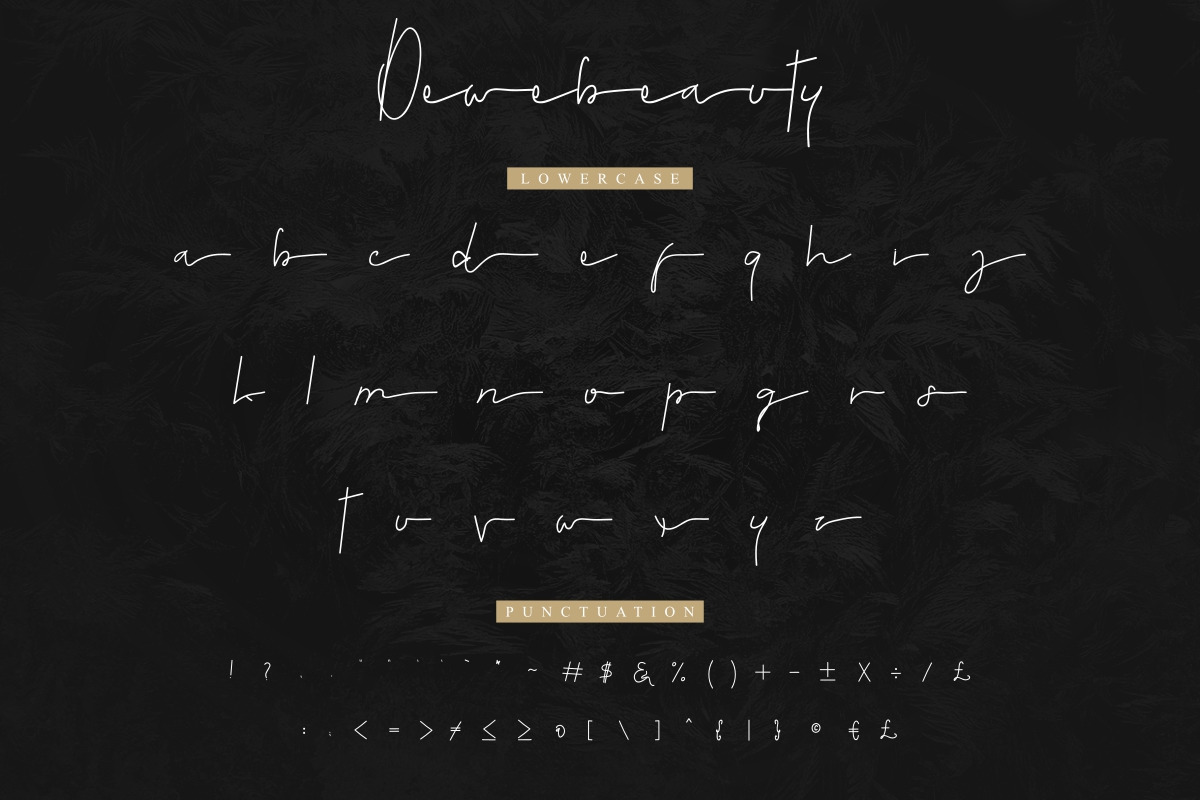 Dewebeauty
LOWERCASE
a b c d e f g h i j
k l m n o p q r s
t u v w x y z
PUNCTUATION
! ? . . " " ' ' ~ * ~ # $ & % ( ) + - ± X ÷ / £
: ; < = > ≠ ≤ ≥ @ [ \ ] ^ { | } © € £